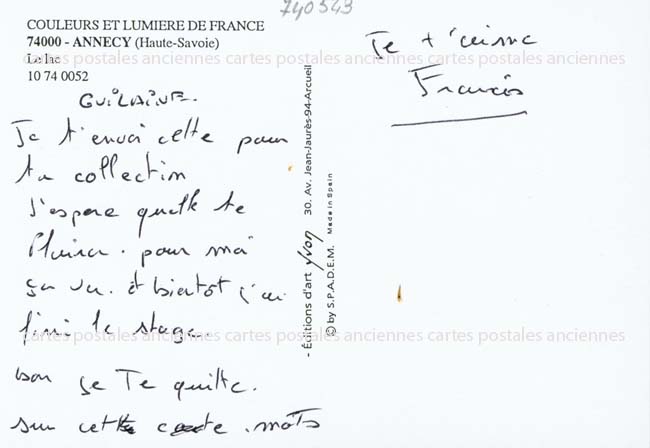 740543
COULEURS ET LUMIERE DE FRANCE
74000 - ANNECY (Haute-Savoie)
Le lac
10 74 0052
GUILAINE.
Je t'envoi cette pour
ta collection
J'espere quelle te
Plaira. pour moi
ça va. et bientôt j'ai
fini le stage.
bon je Te quitte.
sur cette carte. mots
Je t'aime
Francis
- Éditions d'art yvon 30. Av. Jean-Jaurès-94-Arcueil
© by S.P.A.D.E.M. Made in Spain
cartes postales anciennes cartes postales anciennes cartes postales anciennes
cartes postales anciennes cartes postales anciennes cartes postales anciennes